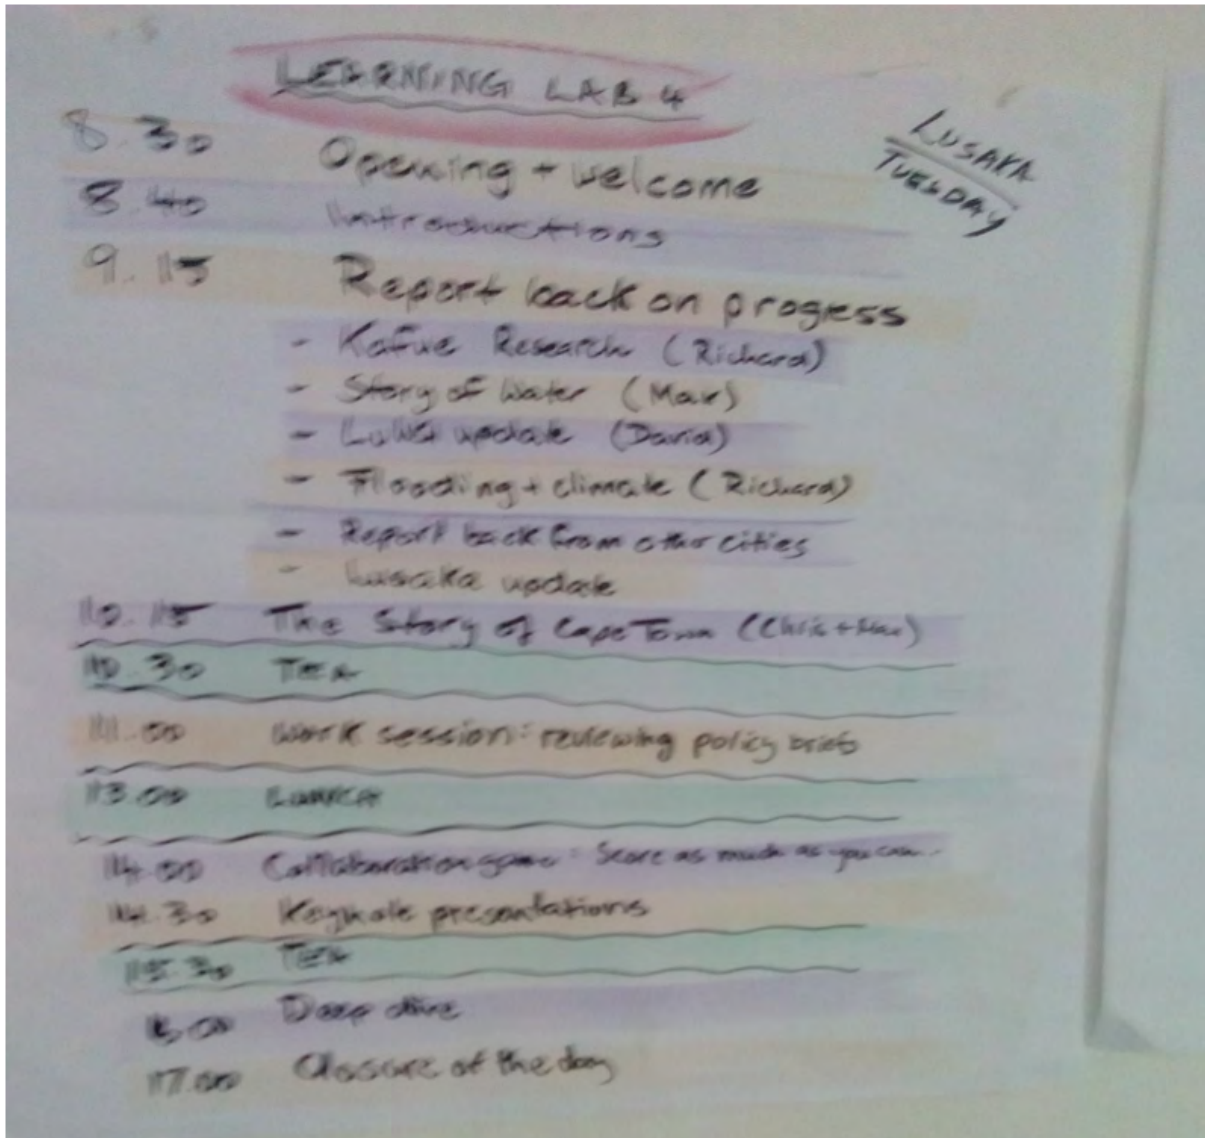 LEARNING LAB 4
LUSAKA
TUESDAY
8.30 Opening + welcome
8.40 Introductions
9.15 Report back on progress
- Kafue Research (Richard)
- Story of Water (Mair)
- LuWSI update (David)
- Flooding + climate (Richard)
- Report back from other cities
- Lusaka update
10.15 The Story of Cape Town (Chris + Mair)
10.30 TEA
11.00 Work session: reviewing policy briefs
13.00 LUNCH
14.00 Collaboration game: Score as much as you can..
14.30 Keynote presentations
15.30 TEA
16.00 Deep dive
17.00 Closure of the day